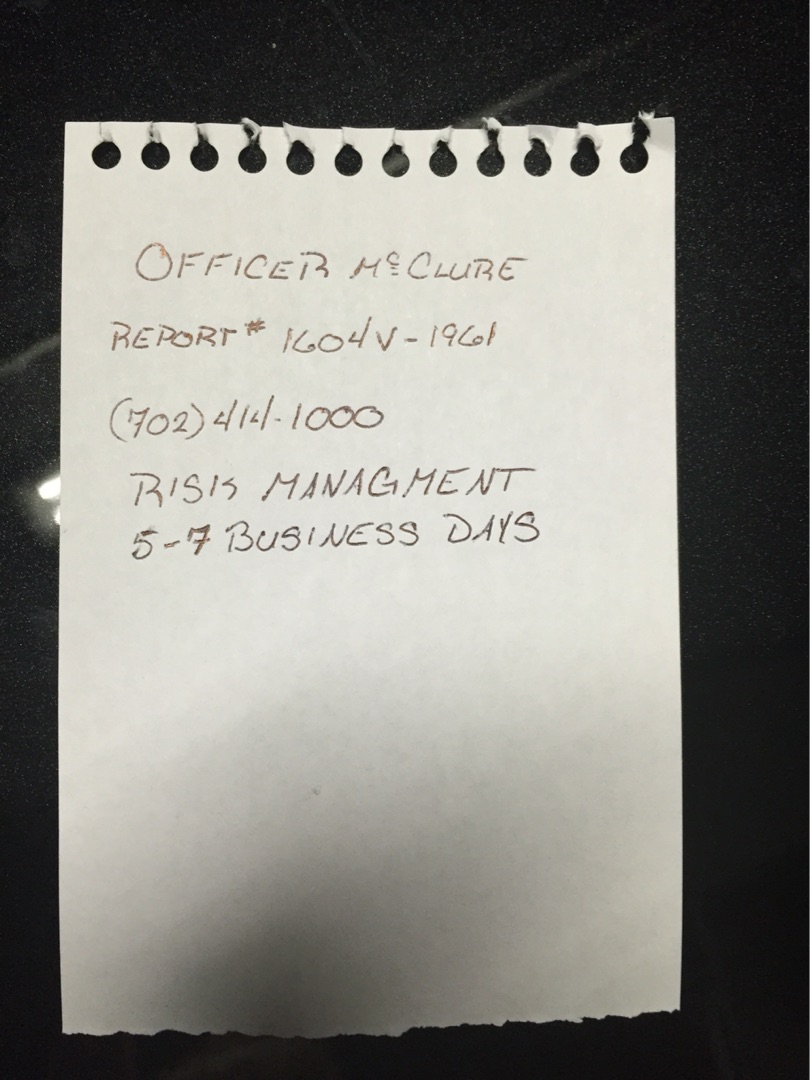 OFFICER McCLURE
REPORT # 1604V-1961
(702) 414-1000
RISK MANAGMENT
5-7 BUSINESS DAYS